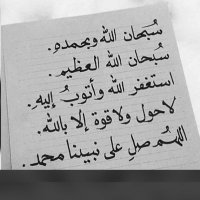 سُبحان الله وبحمده.
سُبحان الله العظيم.
استغفر الله وأتوبُ إليهِ.
لاحول ولا قوة إلا بالله.
اللهُم صلِ على نبينا محمد.